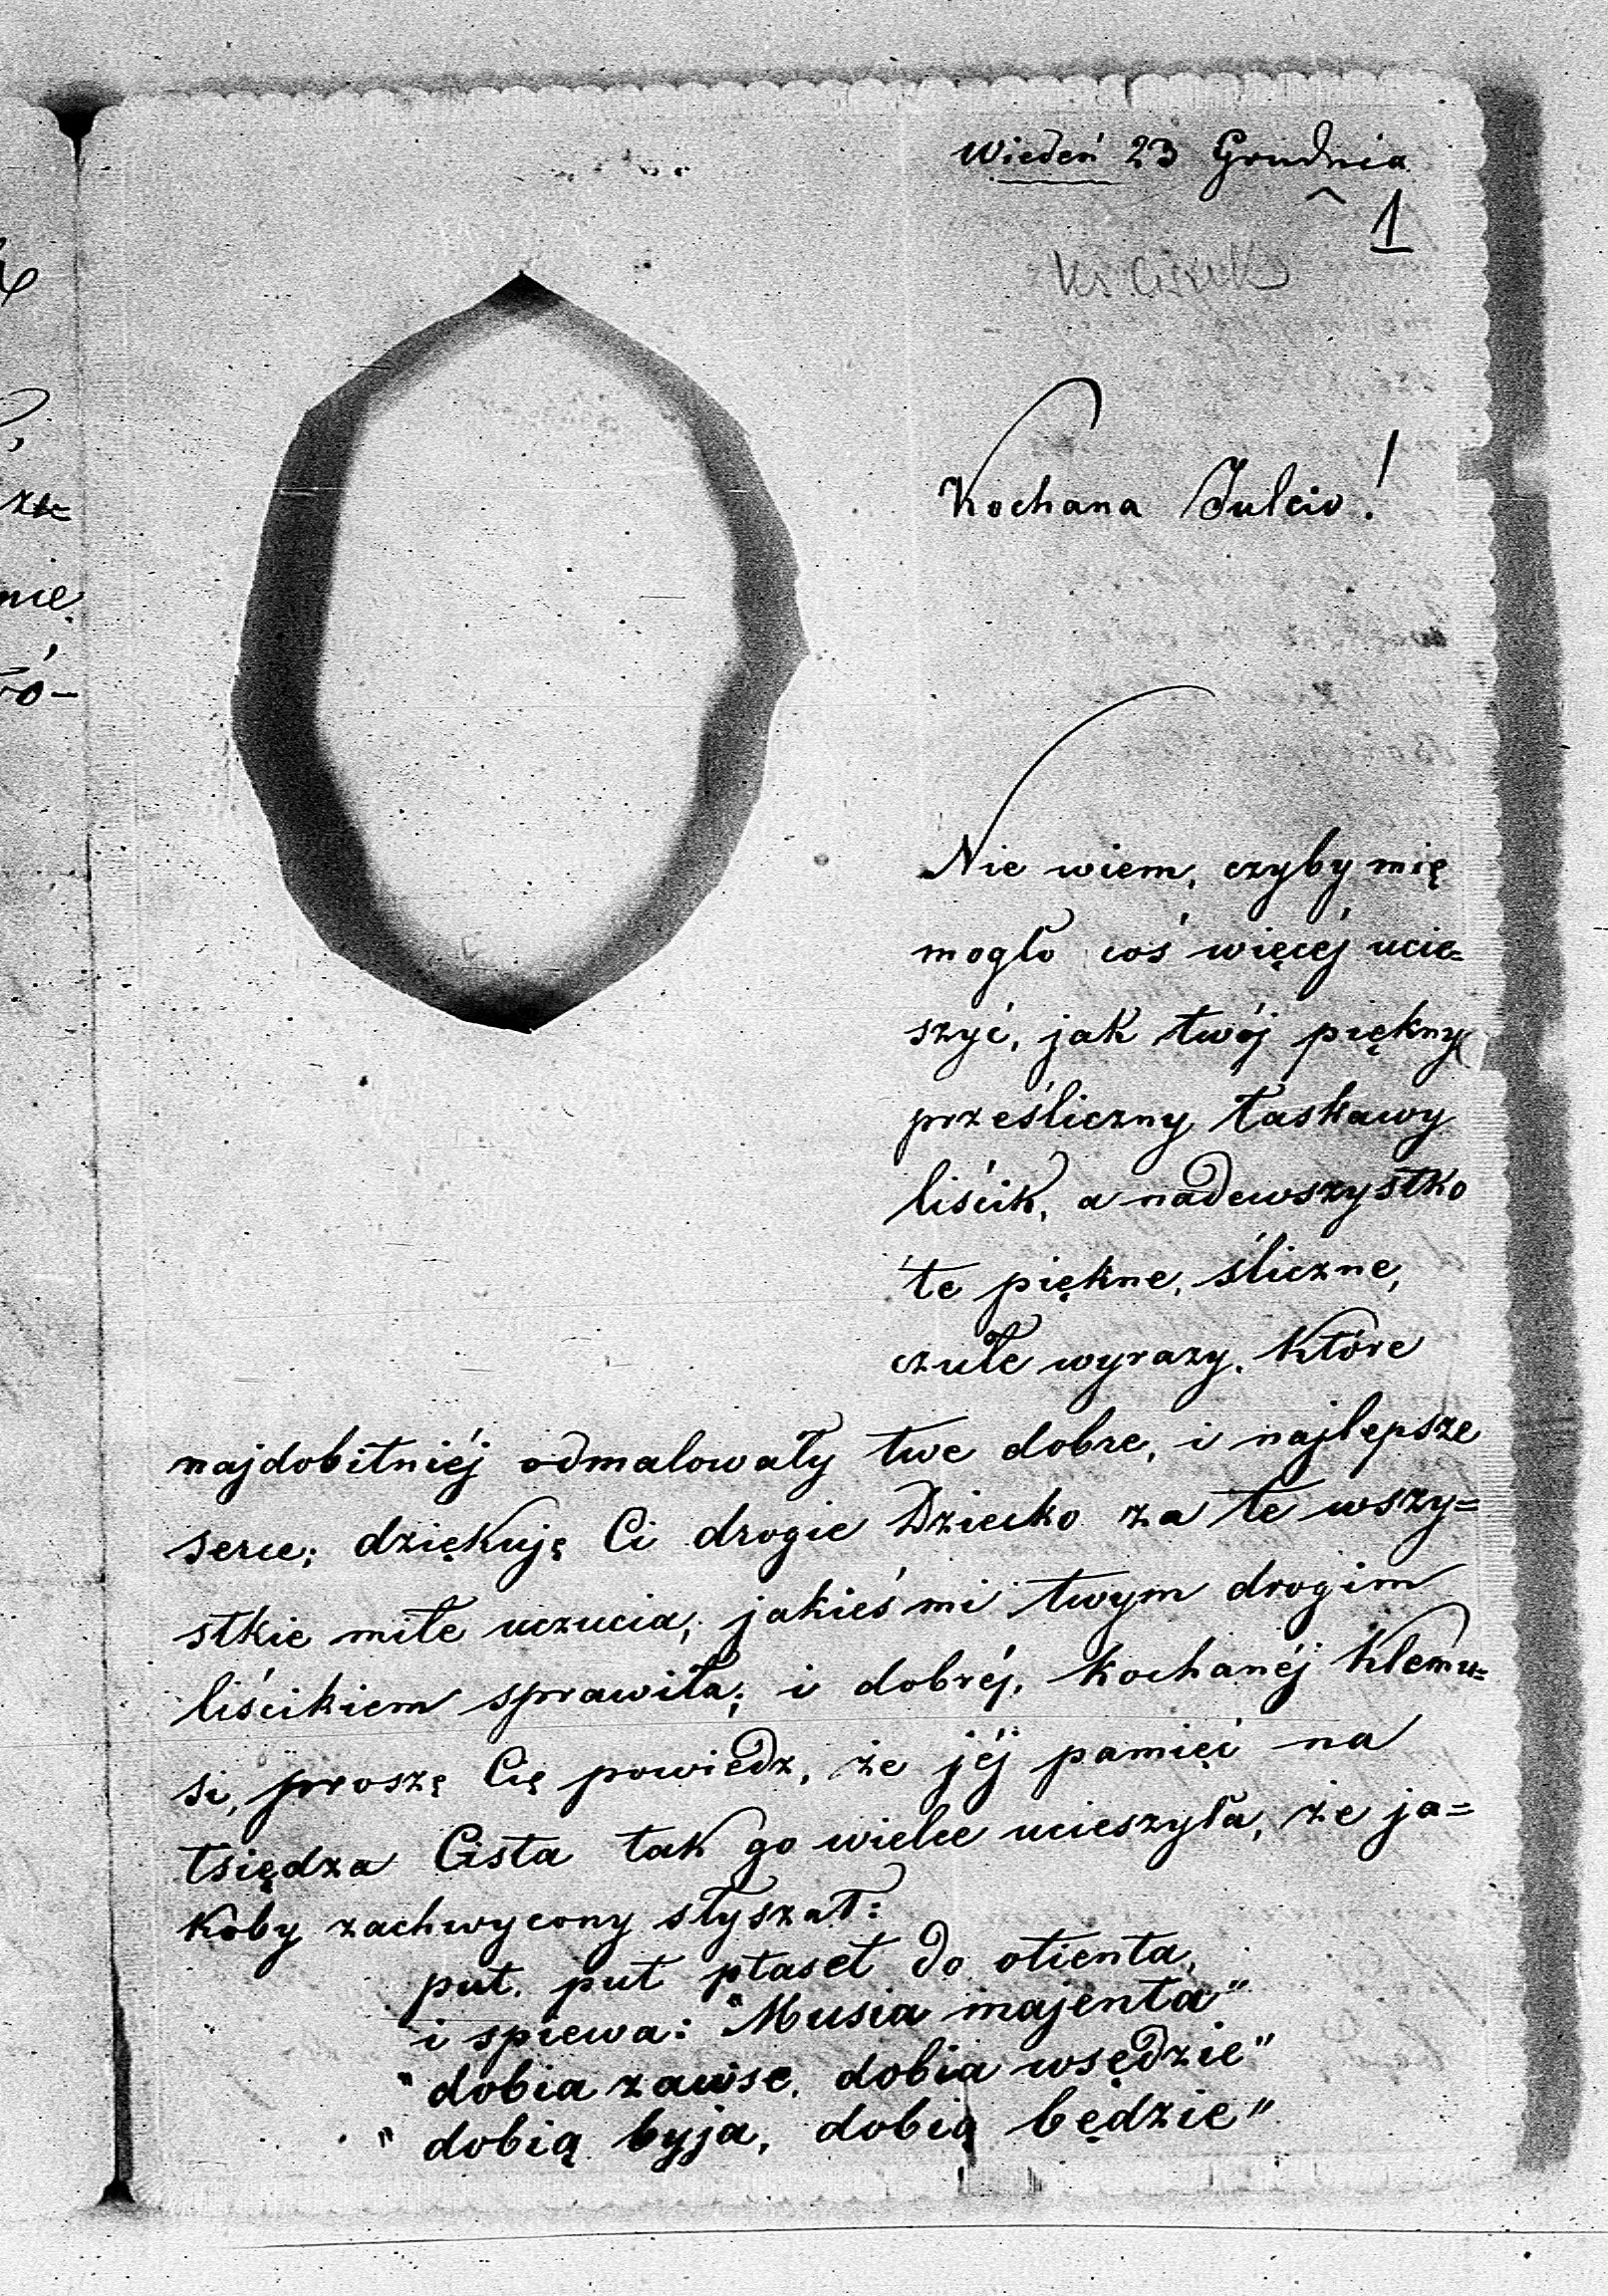 Wiedeń 23 Grudnia
1
Kochana Julciu!
Nie wiem, czyby mię
mogło coś więcéj ucie=
szyć, jak twój piękny
prześliczny łaskawy
liścik, a nadewszystko
te piękne, śliczne,
czułe wyrazy, które
najdobitniéj odmalowały twe dobre, i najlepsze
serce; dziękuję Ci drogie Dziecko za te wszy=
stkie miłe uczucia, jakieś mi twym drogim
liścikiem sprawiła; i dobréj, kochanéj Klemu=
si, proszę Cię powiedz, że jéj pamięć na
tsiędza Cista tak go wielce ucieszyła, że ja=
koby zachwycony słyszał:
put, put ptaset do otienta,
i spiewa: "Musia majenta"
"dobia zawse, dobia wsędzie"
"dobią byja, dobią będzie"